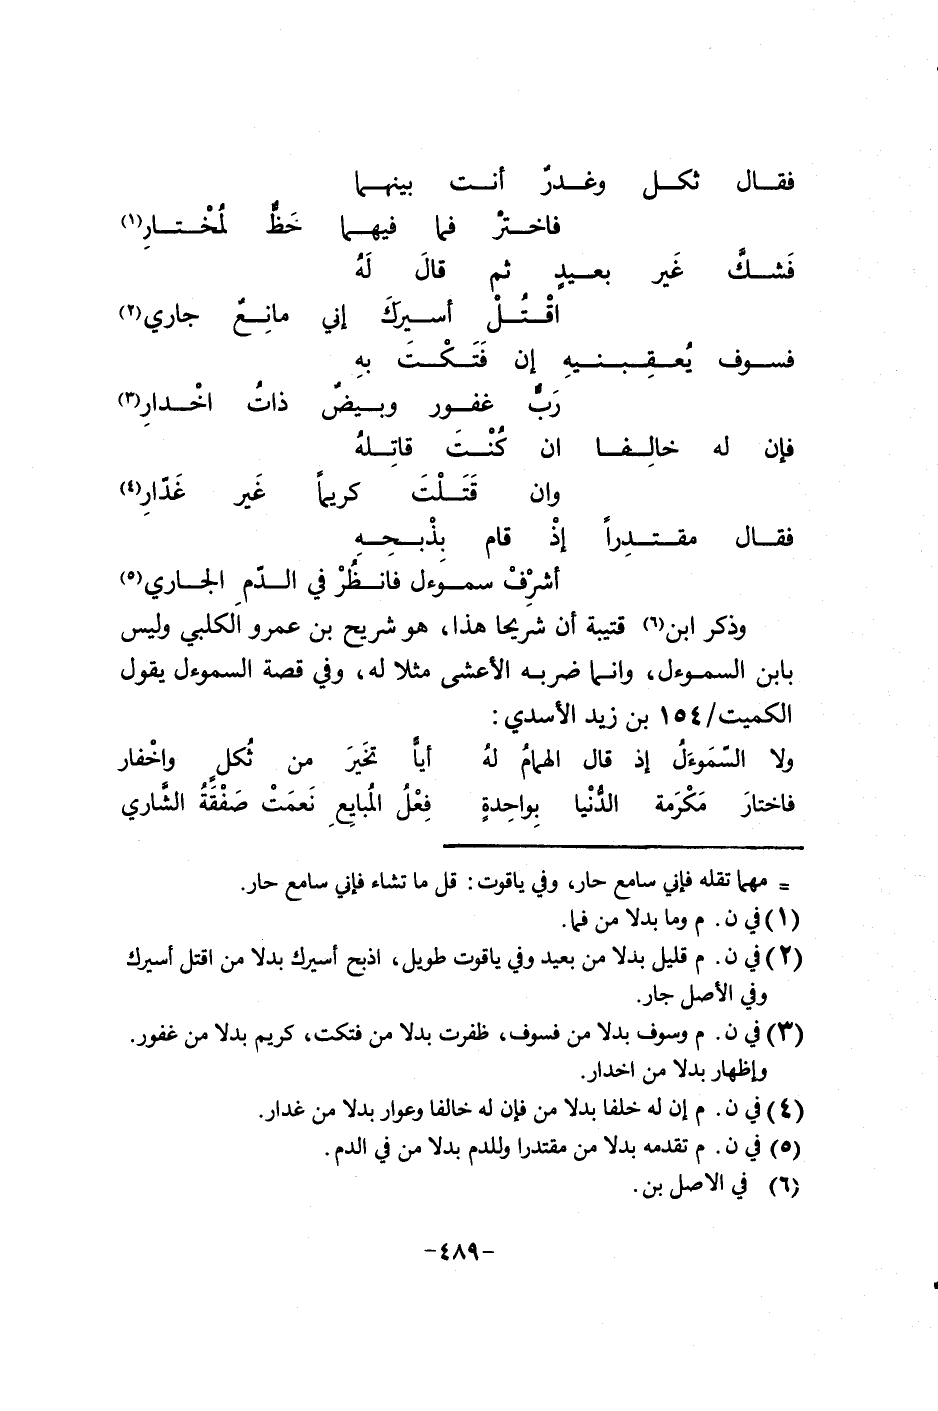 فقال ثكل وغدرٌ أنت بينهما
فاخترْ فما فيهما حَظٌّ لمُخْتارِ(١)
فَشكَّ غَير بعيدٍ ثم قالَ لَهُ
اقْتُلْ أسيركَ إني مانِعٌ جاري(٢)
فسوف يُعقِبنيهِ إن فَتَكْتَ بهِ
رَبٌّ غفور وبيضٌ ذاتُ اخْدارِ(٣)
فإن له خالِفا ان كُنْتَ قاتِلهُ
وان قَتَلْتَ كريماً غَير غَدّارِ(٤)
فقال مقتدراً إذْ قام بِذْبحِهِ
أشرْفْ سموءل فانظُرْ في الدّمِ الجاري(٥)
وذكر ابن(٦) قتيبة أن شريحا هذا، هو شريح بن عمرو الكلبي وليس
بابن السموءل، وانما ضربه الأعشى مثلا له، وفي قصة السموءل يقول
الكميت/١٥٤ بن زيد الأسدي:
ولا السّمَوءَلُ إذ قال الهمامُ لهُ أياًّ تخَيرَ من ثُكلٍ واخْفار
فاختارَ مَكْرَمة الدُّنْيا بِواحِدةٍ فِعْلُ المُبايعِ نَعمَتْ صَفْقَةُ الشَّاري
= مهما تقله فإني سامع حار، وفي ياقوت: قل ما تشاء فإني سامع حار.
(١) في ن. م وما بدلا من فما.
(٢) في ن. م قليل بدلا من بعيد وفي ياقوت طويل، اذبح أسيرك بدلا من اقتل أسيرك
وفي الأصل جار.
(٣) في ن. م وسوف بدلا من فسوف، ظفرت بدلا من فتكت، كريم بدلا من غفور.
وإظهار بدلا من اخدار.
(٤) في ن. م إن له خلفا بدلا من فإن له خالفا وعوار بدلا من غدار.
(٥) في ن. م تقدمه بدلا من مقتدرا وللدم بدلا من في الدم.
(٦) في الاصل بن.
-٤٨٩-